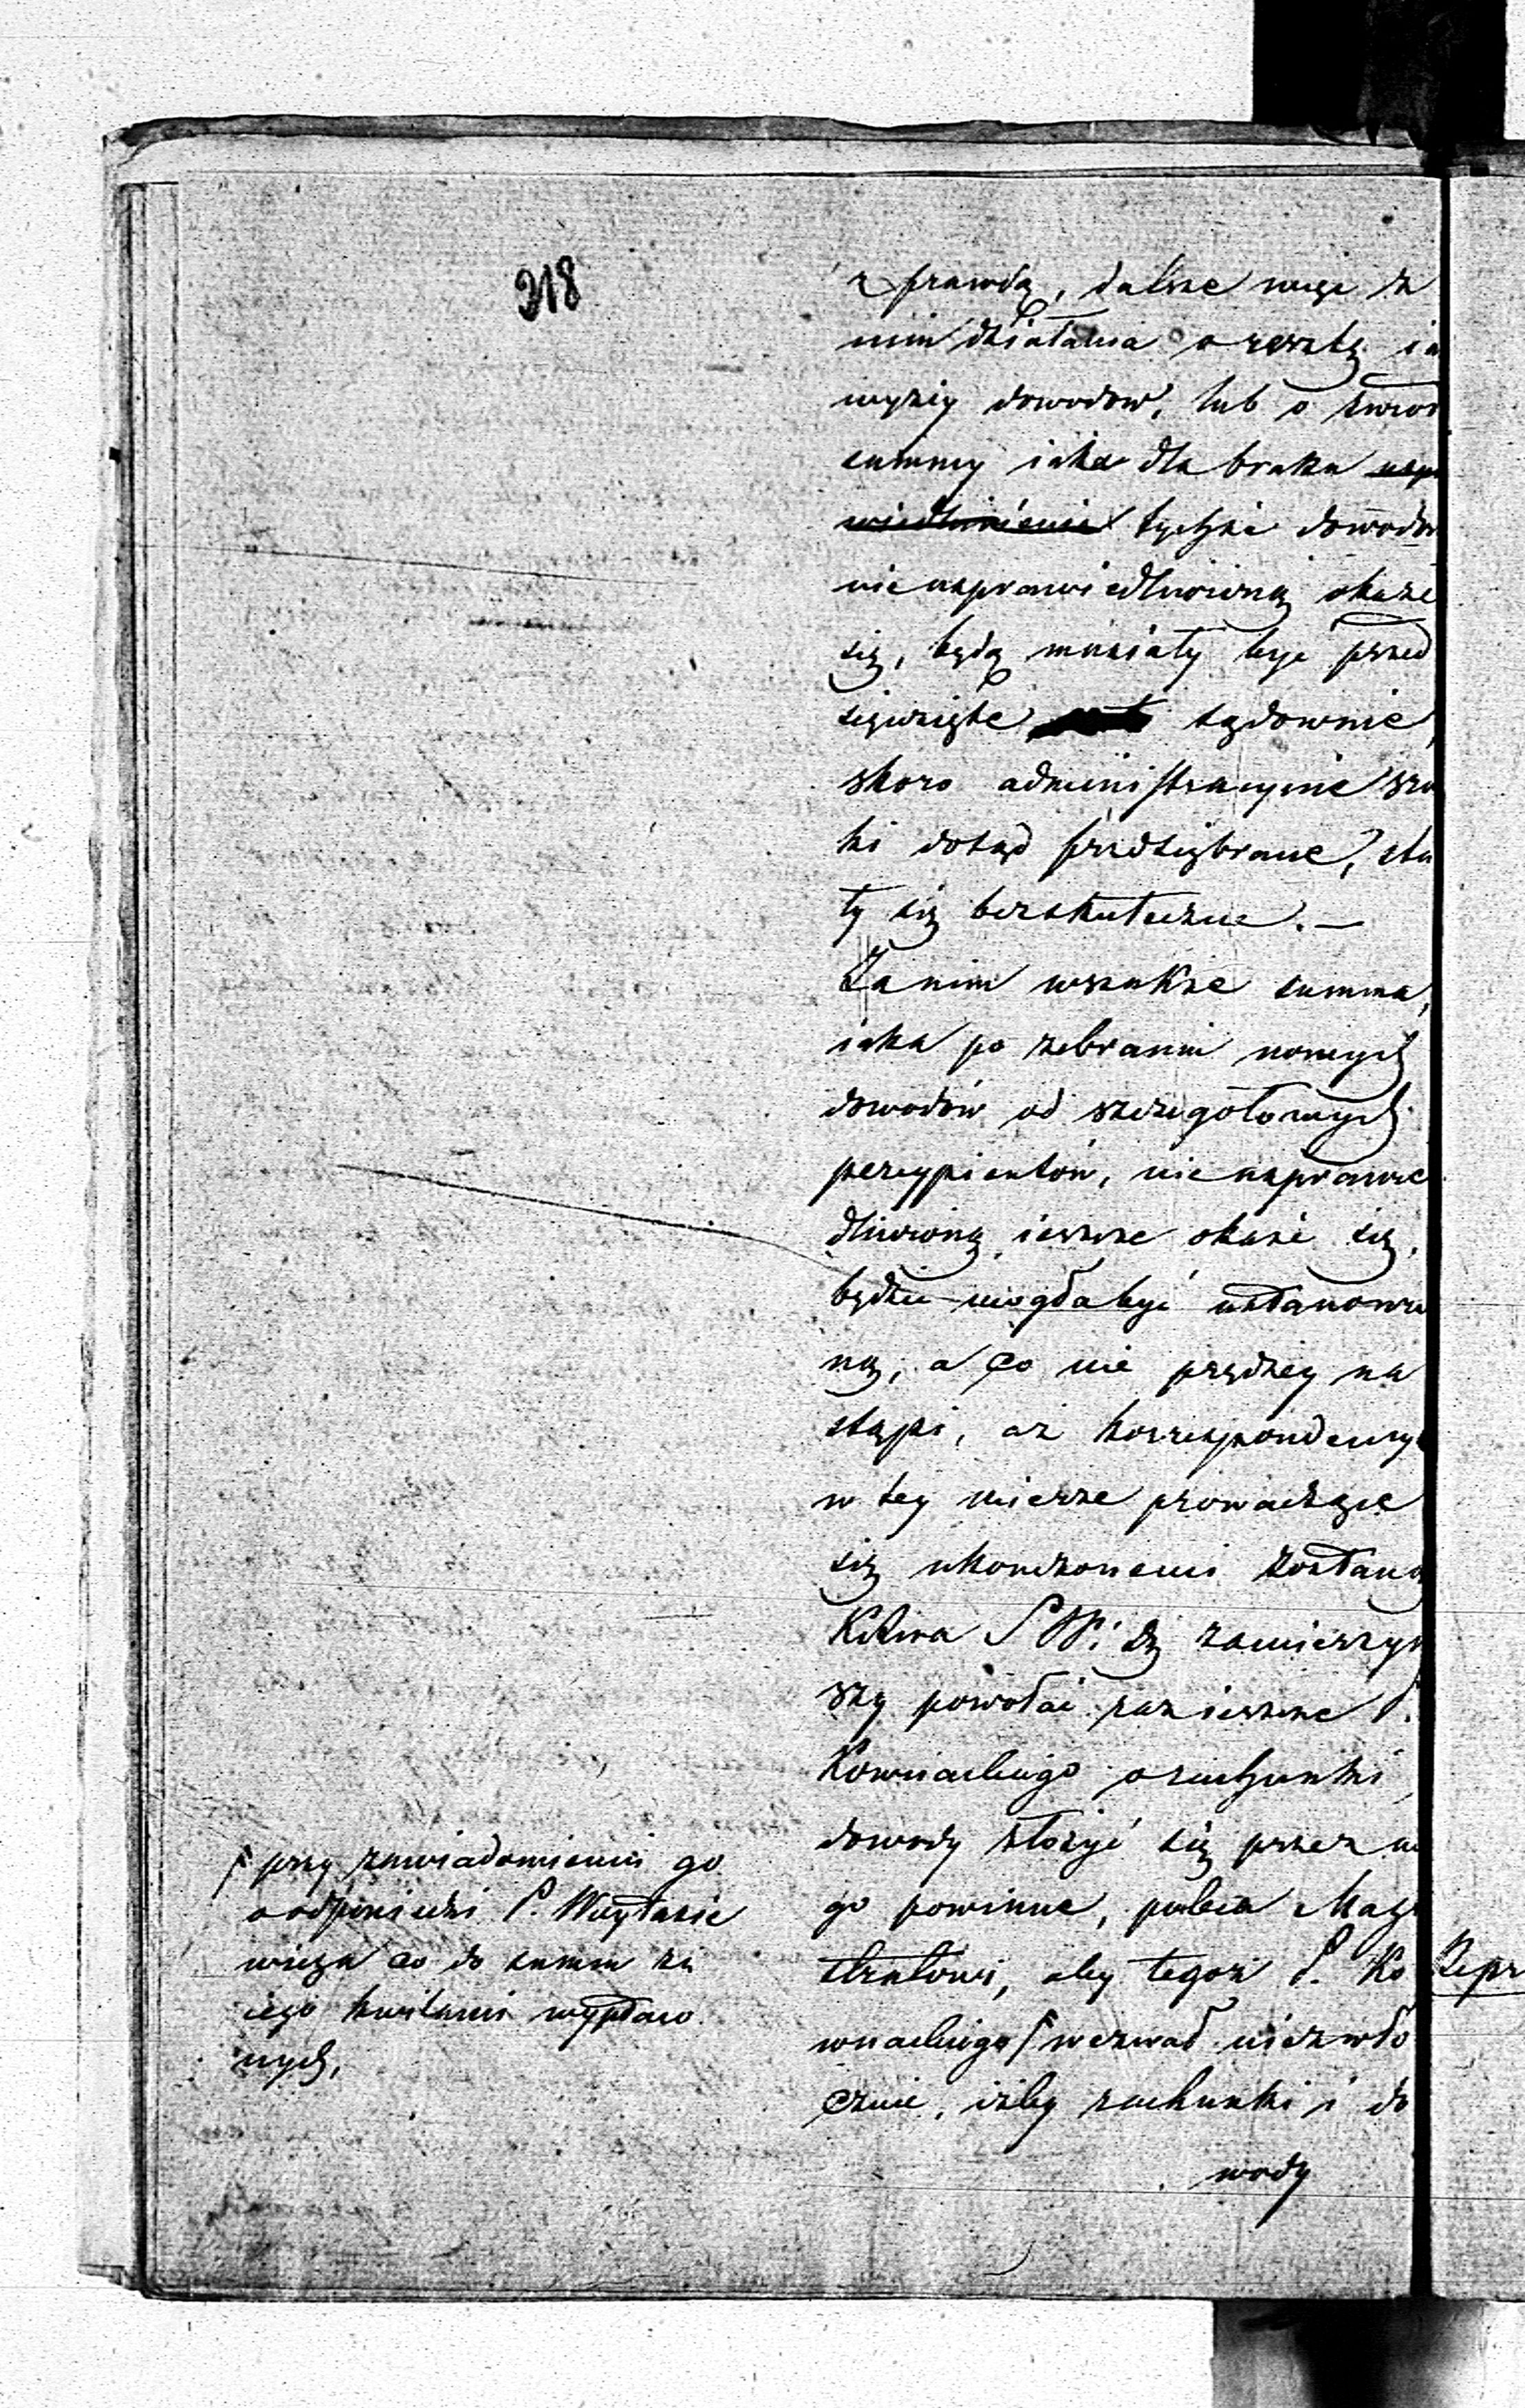 318
z prawdą, dalsze więc z
nim działania o resztę ia
wyżéy dowodów, lub o zwrot
summy iaka dla braku uspr
wiedliwienia tychże dowodów
nieusprawiedliwioną okaże
się, będą musiały być przed
sięwzięte sądownie,
skoro administracyine szro
ki dotąd przedsiębrane, sta
ły się bezskuteczne. —
Zanim wszakże summa,
iaka po zebraniu nowych
dowodów od szczegółowych
percypientów, nieusprawie
dliwioną ieszcze okaże się,
będzie mogła być ustanowio
ną, a co nie prędzéy na
stąpi, aż korrespondencye
w téy mierze prowadzące
się ukończonemi zostaną
zamierzyw
szy powołać raz ieszcze P.
Kownackiego o rachunki
dowody złożyć się przez nie
go powinne, poleca Magi
stratowi, aby tegoż P. Ko
wnackiego / wezwał niezwło
cznie, iżby rachunki i do
wody
/ przy zawiadomieniu go
o odpowiedzi P. Woytasie
wicza co do summ za
iego kwitami wypłaco
nych,